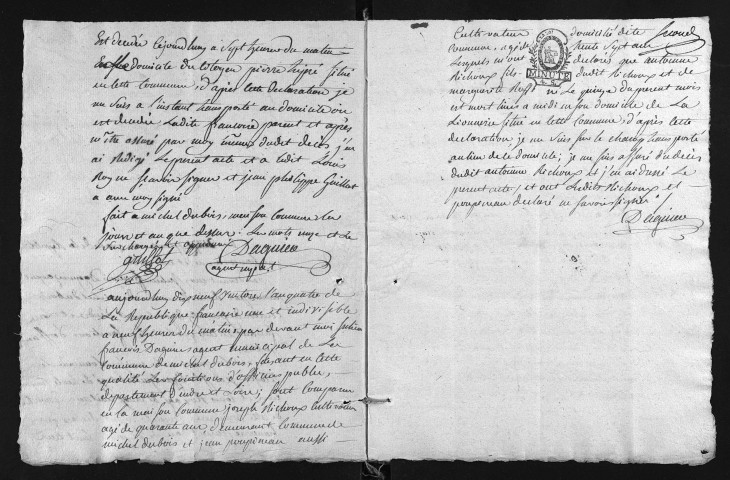 Est decedée cejourdhuy a sept heures du matin
domicile du citoyen pierre sitüé
en cette commune, d'après cette declaration je
me suis a l'instant transporté au domicile ou
est decedée ladite francoise parent et après
m'être assuré par moy même dudit deces j'en
ai redigé le present acte et a ledit Louis
Roy ne scavoir signer et jean philippe Guillot
a avec moy signé
fait a michel dubois, maison commune les
jours et an que dessus. Les mots raye et la
surcharge approuvé
Daguin
agent mpal
aujourdhuy dix neuf ventose l'an quatre de
La Republique francaise une et indivisible
a neuf heures du matin, par devant moi julien
francois Daguin agent municipal de La
Commune de michel dubois, faisant en cette
qualité Les fonctions d'officier public,
departement d'indre et Loire; sont comparus
en la maison commune joseph Richoux cultivateur
agé de quarante ans, demeurant commune de
michel dubois et jean poupineau aussi
Cultivateur domicilié dite
commune, agé de trente sept ans
Lesquels m'ont declaré que antoinne
Richoux fils dudit Richoux et de
marguerite
MINUTE
Le quinze du present mois
est mort hier a midi en son domicile de La
sitüé en cette commune, d'après cette
declaration je me suis sur le champ transporté
au lieu de ce domicile, je me suis assuré du decès
dudit antoinne Richoux et j'en ai dressé Le
present acte, et ont Lesdits Richoux et
poupineau declaré ne savoir signer
Daguin